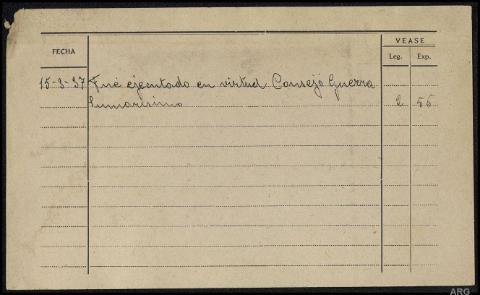 VEASE
FECHA
Leg. Exp.
15-3-37 Fué ejecutado en virtud Consejo Guerra
Sumarísimo 2 55
ARG